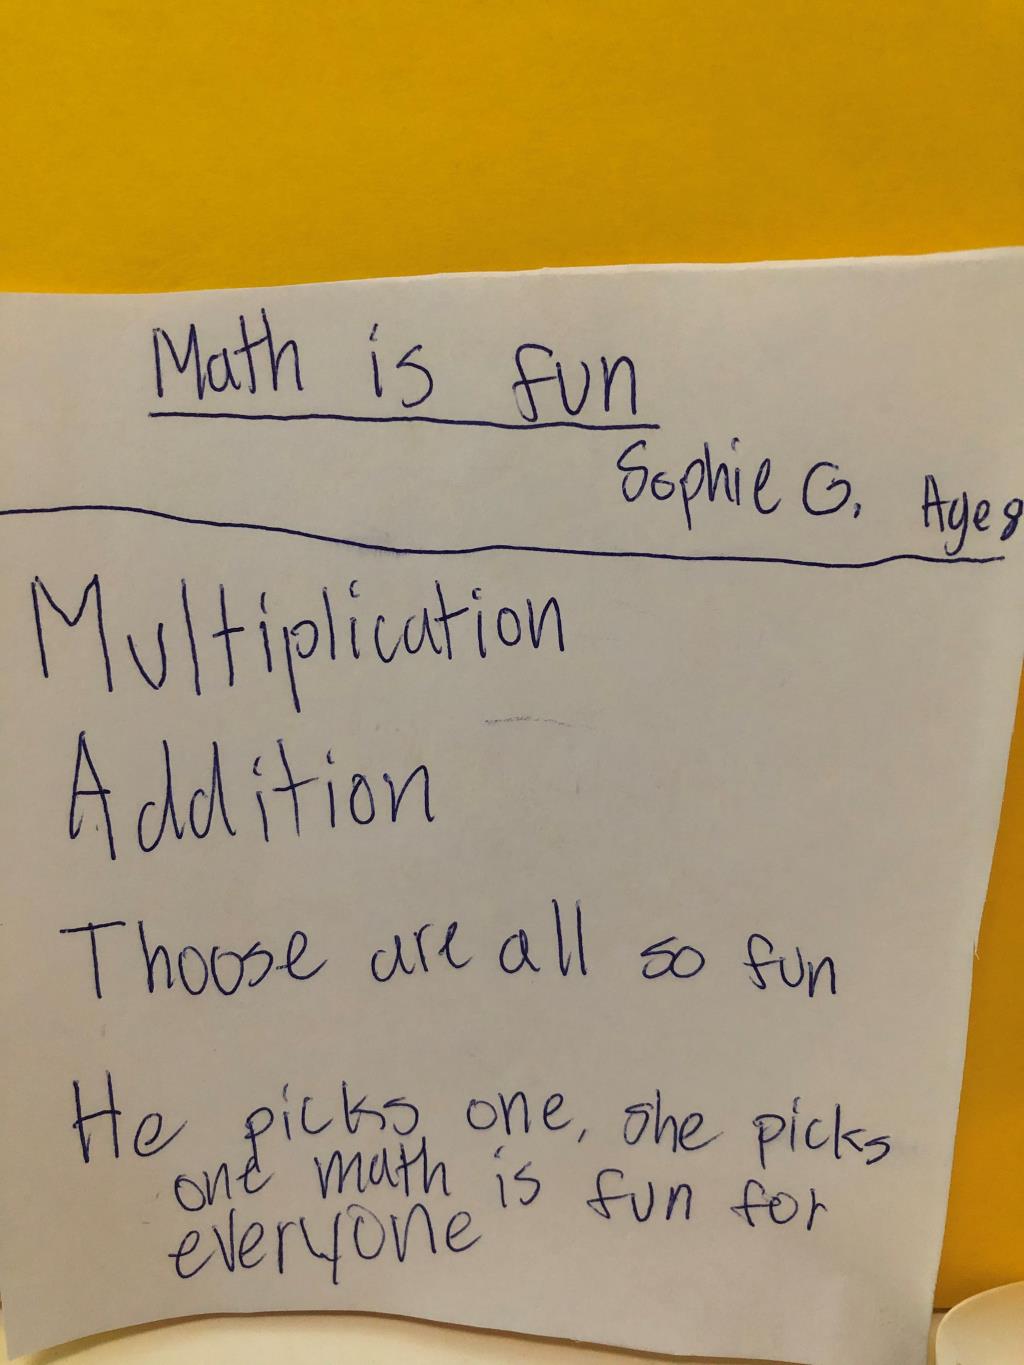 Math is fun
Sophie G. Age 8
Multiplication
Addition
Thoose are all so fun
He picks one, she picks
one math is fun for
everyone